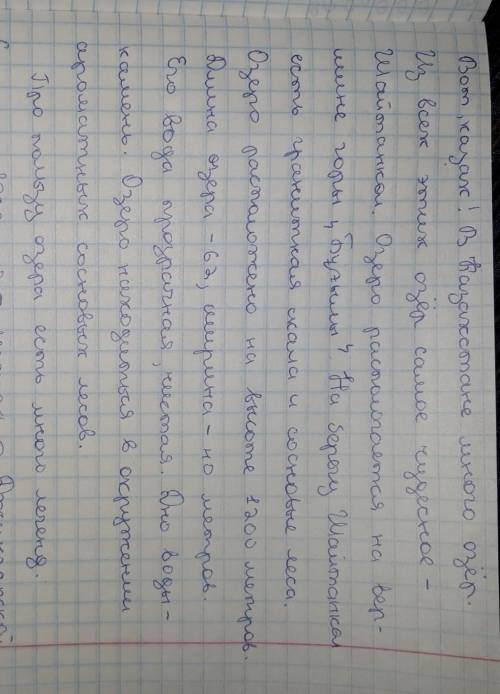 Вот, казах! В Казахстане много озёр.
Из всех этих озёр самое чудесное -
Шайтанкол. Озеро располагается на вер-
шине горы "Бугылы". На берегу Шайтанкол
есть гранитная скала и сосновые леса.
Озеро расположено на высоте 1200 метров.
Длина озера - 62, ширина - но метров.
Его вода прозрачная, чистая. Дно воды -
камень. Озеро находиться в окружении
ароматных сосновых лесов.
Про пользу озера есть много легенд.